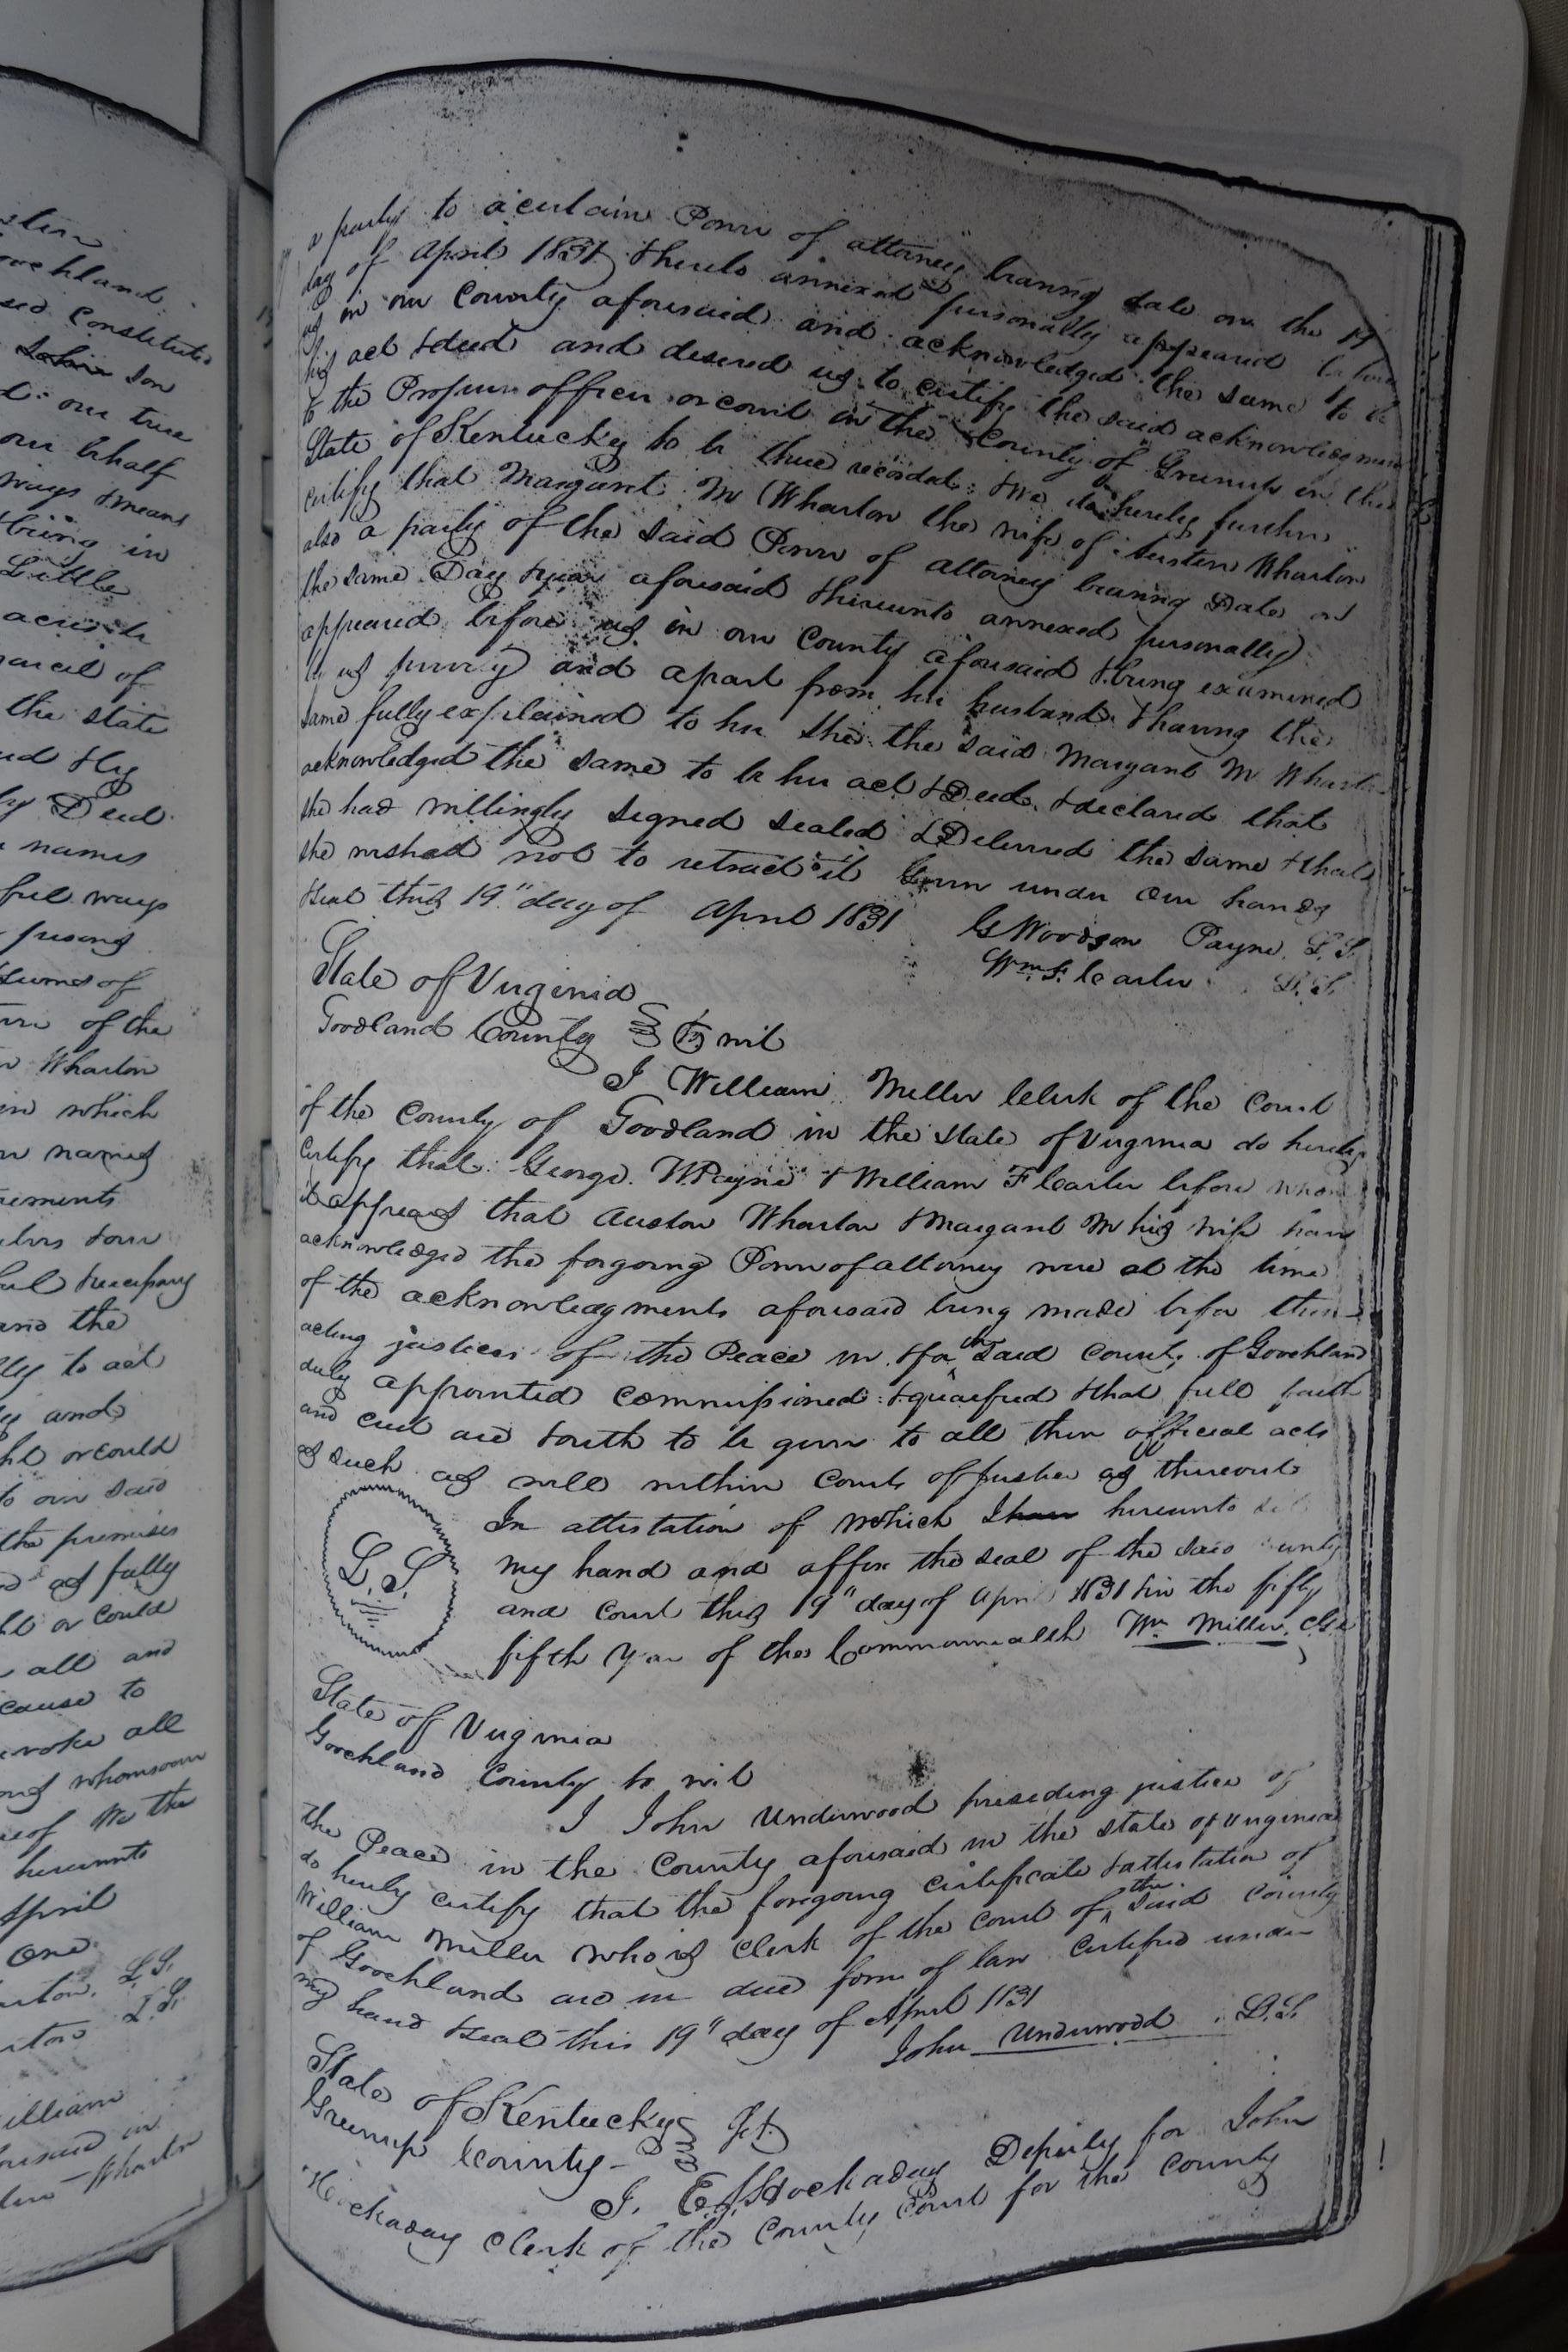 stern
oochland
sed Constitute
John son
d. our true
our behalf
ways & means
& being in
Little
acious
parcel of
the state
and thy
by Deed
names
ful ways
prisons
Sums of
of the
Wharton
in which
names
ements
tors tour
ful & necessary
and the
lly to act
and
ht or could
to our said
the premises
as fully
or could
all and
cause to
revoke all
whomsoever
eof We the
hereunto
April
one
arton, L.S.
rton L.S.
illiam
foresaid in
Wharton
a party to a certain Power of attorney bearing date on the 19
day of April 1831, thereto annexed personally appeared before
us in our County aforesaid and acknowledged the same to be
his act & deed and desired us to certify the said acknowledgment
to the Proper officer or court in the County of Greenup in the
State of Kentucky to be thue recorded. & We do hereby further
certify that Margaret M Wharton the wife of Austen Wharton
also a party of the said Power of attorney bearing Date on
the same Day & year aforesaid thereunto annexed personally
appeared before us in our County aforesaid & being examined
by us privily and apart from her husband & having the
same fully explained to her she the said Margaret M Wharton
acknowledged the same to be her act & Deed, & declared that
she had willingly signed sealed & Delivered the same & that
she wished not to retract it Given under our hands
& seal this 19" day of April 1831
G Woodson Payne, L.S.
Wm F. Carter L.S.
State of Virginia
Goodland County To wit
I William Miller Clerk of the Court
of the County of Goodland in the state of Virginia do hereby
certify that George. W. Payne & William F Carter before whom
it appears that Auston Wharton & Margaret M his wife have
acknowledged the forgoing Power of attorney were at the time
of the acknowledgments aforesaid being made befor them
acting justices of the Peace in & for the said County of Goochland
duly appointed commissioned & qualified & that full faith
and cred are & outh to be given to all their official acts
as such as well within Court of Justice as thereout
L.S.
In attestation of which I have hereunto set
my hand and affix the seal of the said unty
and Court this 19" day of April 1831 & in the fifty
fifth Year of the Commonwealth Wm Miller, Clk
State of Virginia
Goochland County to wit
I John Underwood presiding justice of
the Peace in the County aforesaid in the state of Virginia
do hereby certify that the foregoing certificate & attestation of
William Miller who is Clerk of the Court of the said County
of Goochland are in due form of law Certified under
my hand & seal this 19" day of April 1831
John Underwood L.S.
State of Kentucky
Greenup County Sct
I. E. Hockaday Deputy for John
Hockaday Clerk of the County Court for the County